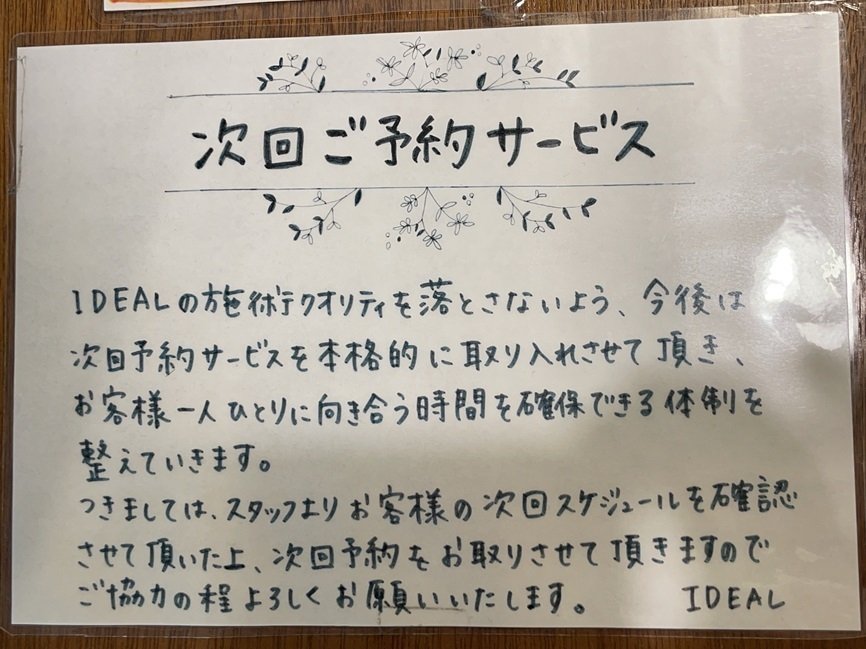 次回ご予約サービス
IDEALの施術クオリティを落とさないよう、今後は
次回予約サービスを本格的に取り入れさせて頂き、
お客様一人ひとりに向き合う時間を確保できる体制を
整えていきます。
つきましては、スタッフよりお客様の次回スケジュールを確認
させて頂いた上、次回予約をお取りさせて頂きますので
ご協力の程よろしくお願いいたします。 IDEAL